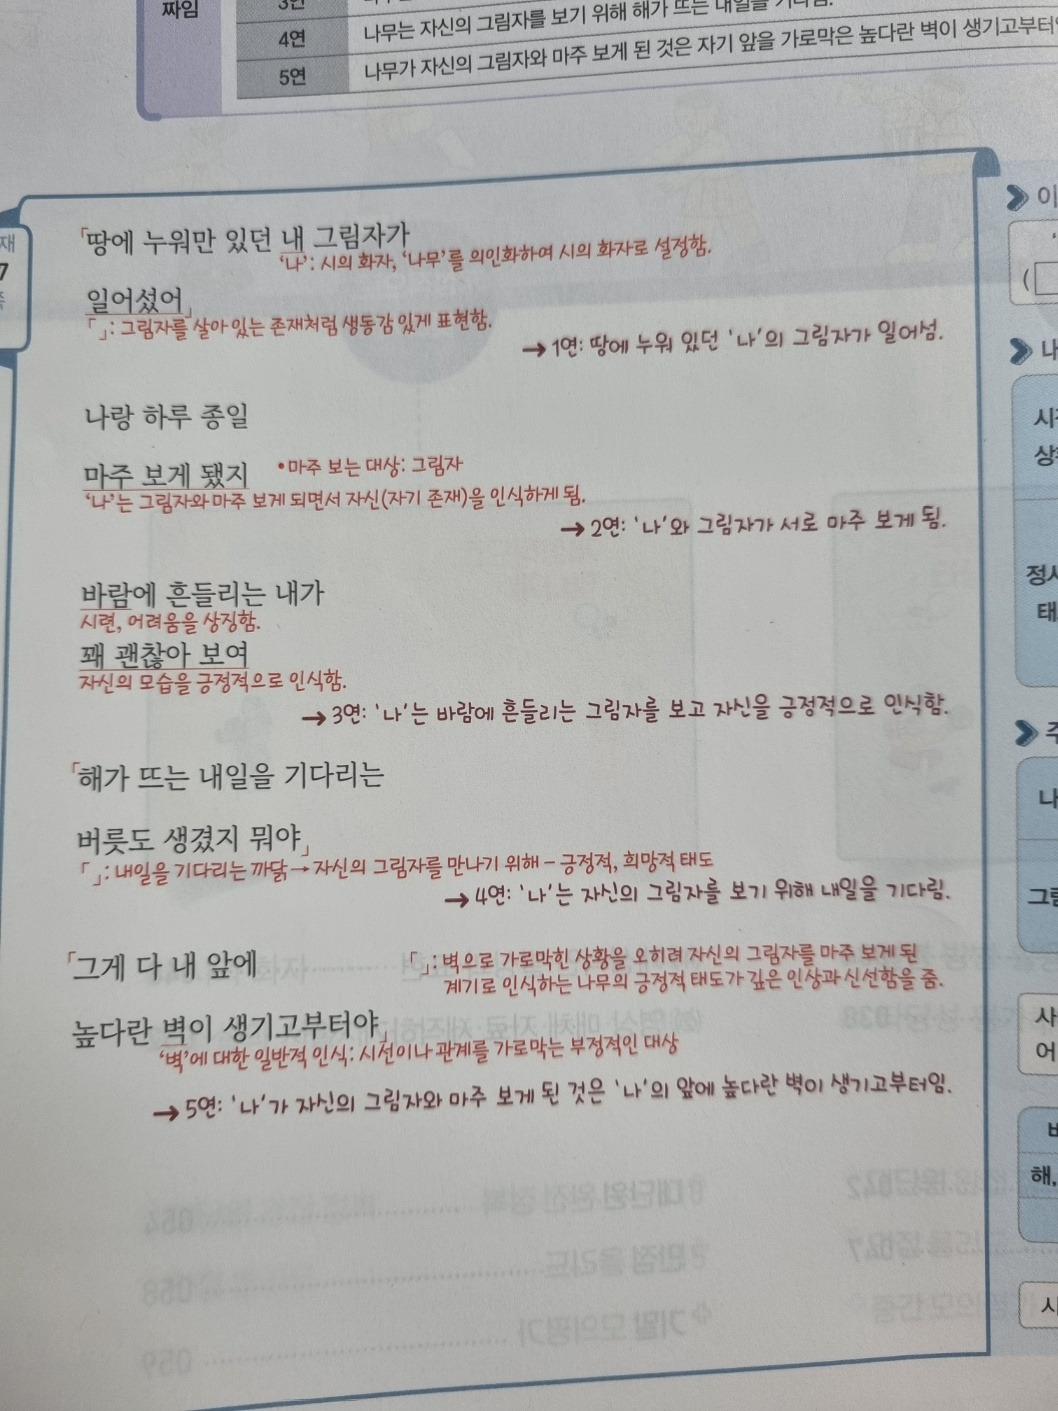 짜임
3연
4연 나무는 자신의 그림자를 보기 위해 해가 뜨는 내일을 기다림.
5연 나무가 자신의 그림자와 마주 보게 된 것은 자기 앞을 가로막은 높다란 벽이 생기고부터
재
7
쪽
「땅에 누워만 있던 내 그림자가
'나': 시의 화자, '나무'를 의인화하여 시의 화자로 설정함.
일어섰어」
「 」: 그림자를 살아 있는 존재처럼 생동감 있게 표현함.
→ 1연: 땅에 누워 있던 '나'의 그림자가 일어섬.
나랑 하루 종일
마주 보게 됐지 •마주 보는 대상: 그림자
'나'는 그림자와 마주 보게 되면서 자신(자기 존재)을 인식하게 됨.
→ 2연: '나'와 그림자가 서로 마주 보게 됨.
바람에 흔들리는 내가
시련, 어려움을 상징함.
꽤 괜찮아 보여
자신의 모습을 긍정적으로 인식함.
→ 3연: '나'는 바람에 흔들리는 그림자를 보고 자신을 긍정적으로 인식함.
「해가 뜨는 내일을 기다리는
버릇도 생겼지 뭐야」
「 」: 내일을 기다리는 까닭 → 자신의 그림자를 만나기 위해 – 긍정적, 희망적 태도
→ 4연: '나'는 자신의 그림자를 보기 위해 내일을 기다림.
「그게 다 내 앞에 「 」: 벽으로 가로막힌 상황을 오히려 자신의 그림자를 마주 보게 된
계기로 인식하는 나무의 긍정적 태도가 깊은 인상과 신선함을 줌.
높다란 벽이 생기고부터야」
'벽'에 대한 일반적 인식: 시선이나 관계를 가로막는 부정적인 대상
→ 5연: '나'가 자신의 그림자와 마주 보게 된 것은 '나'의 앞에 높다란 벽이 생기고부터임.
이
(
나
시
상
정
태
주
나
그
사
어
해,
시